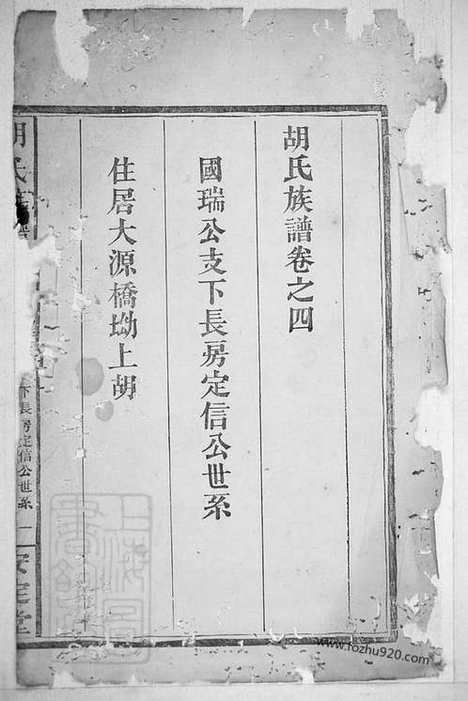 胡氏族譜卷之四
國瑞公支下長房定信公世系
住居大源橋坳上胡
胡氏
下長房定信公世系
一
安定堂
www.fozhu920.com